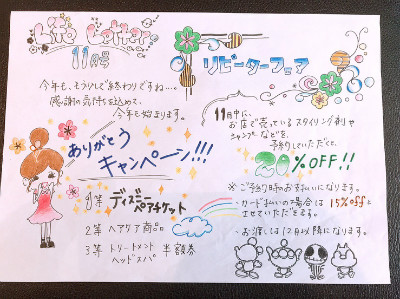 Lito Letter
11月号
今年も、もう少しで終わりですね…。
感謝の気持を込めて、
今年も始まります。
ありがとう
キャンペーン!!!
1等 ディズニー
ペアチケット
2等 ヘアケア商品
3等 トリートメント 半額券
ヘッドスパ
リピーターフェア
11月中に、
お店で売っているスタイリング剤や
シャンプーなどを、
予約していただくと、
20%OFF!!
※ご予約時のお支払いになります。
・カード払いの場合は15%offと
させていただきます。
・お渡しは12月以降になります。